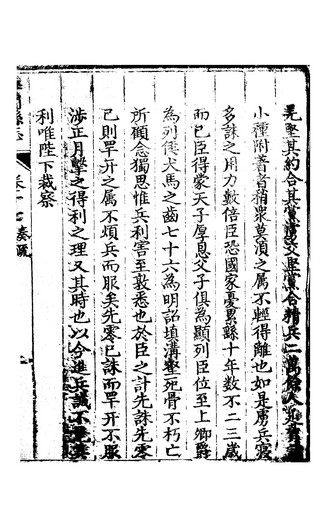 羌堅其約合其黨虜交堅黨合精兵二萬餘人迫脅諸
小種附著者稍衆莫湏之属不輕得離也如是虜兵寖
多誅之用力數倍臣恐國家憂累繇十年數不二三歲
而已臣得蒙天子厚恩父子俱為顯列臣位至上卿爵
為列侯犬馬之齒七十六為明詔填溝壑死骨不朽亡
所顧念獨思惟兵利害至敦悉也於臣之計先誅先零
已則罕幵之属不煩兵而服矣先零已誅而罕幵不服
涉正月擊之得利之理又其時也以今進兵誠不見其
利唯陛下裁察
縣志
卷十七
奏疏